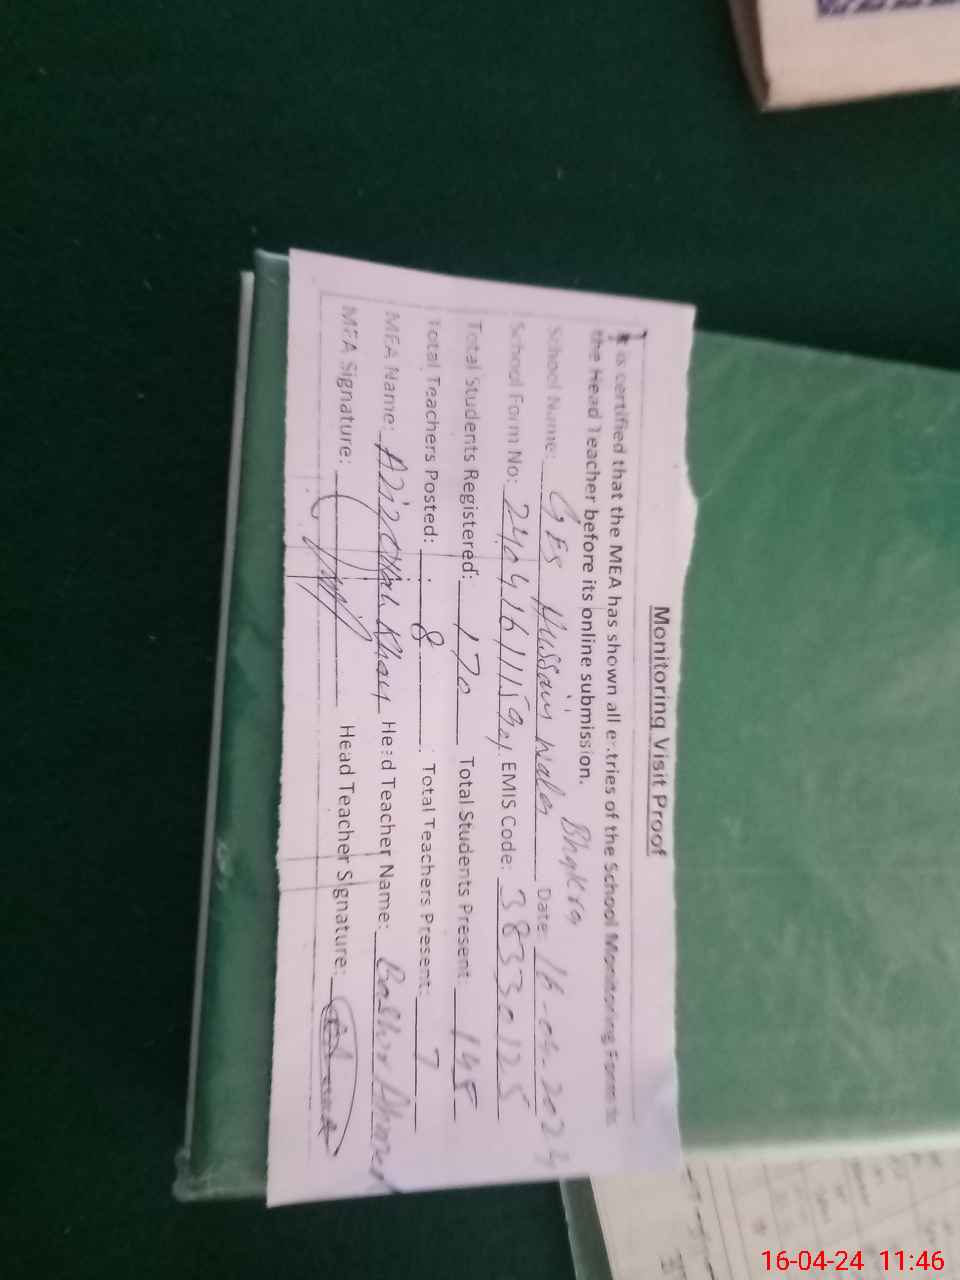 Monitoring Visit Proof
It is certified that the MEA has shown all entries of the School Monitoring Form to
the Head Teacher before its online submission.
Bhakra
School Name: GES Hussain Wala Date: 16-04-2024
School Form No: EMIS Code: 38330125
Total Students Registered: 170 Total Students Present: 148
Total Teachers Posted: 8 Total Teachers Present: 7
MEA Name: Azizullah Khan Head Teacher Name: Bashir Ahmed
MEA Signature: Head Teacher Signature:
16-04-24 11:46